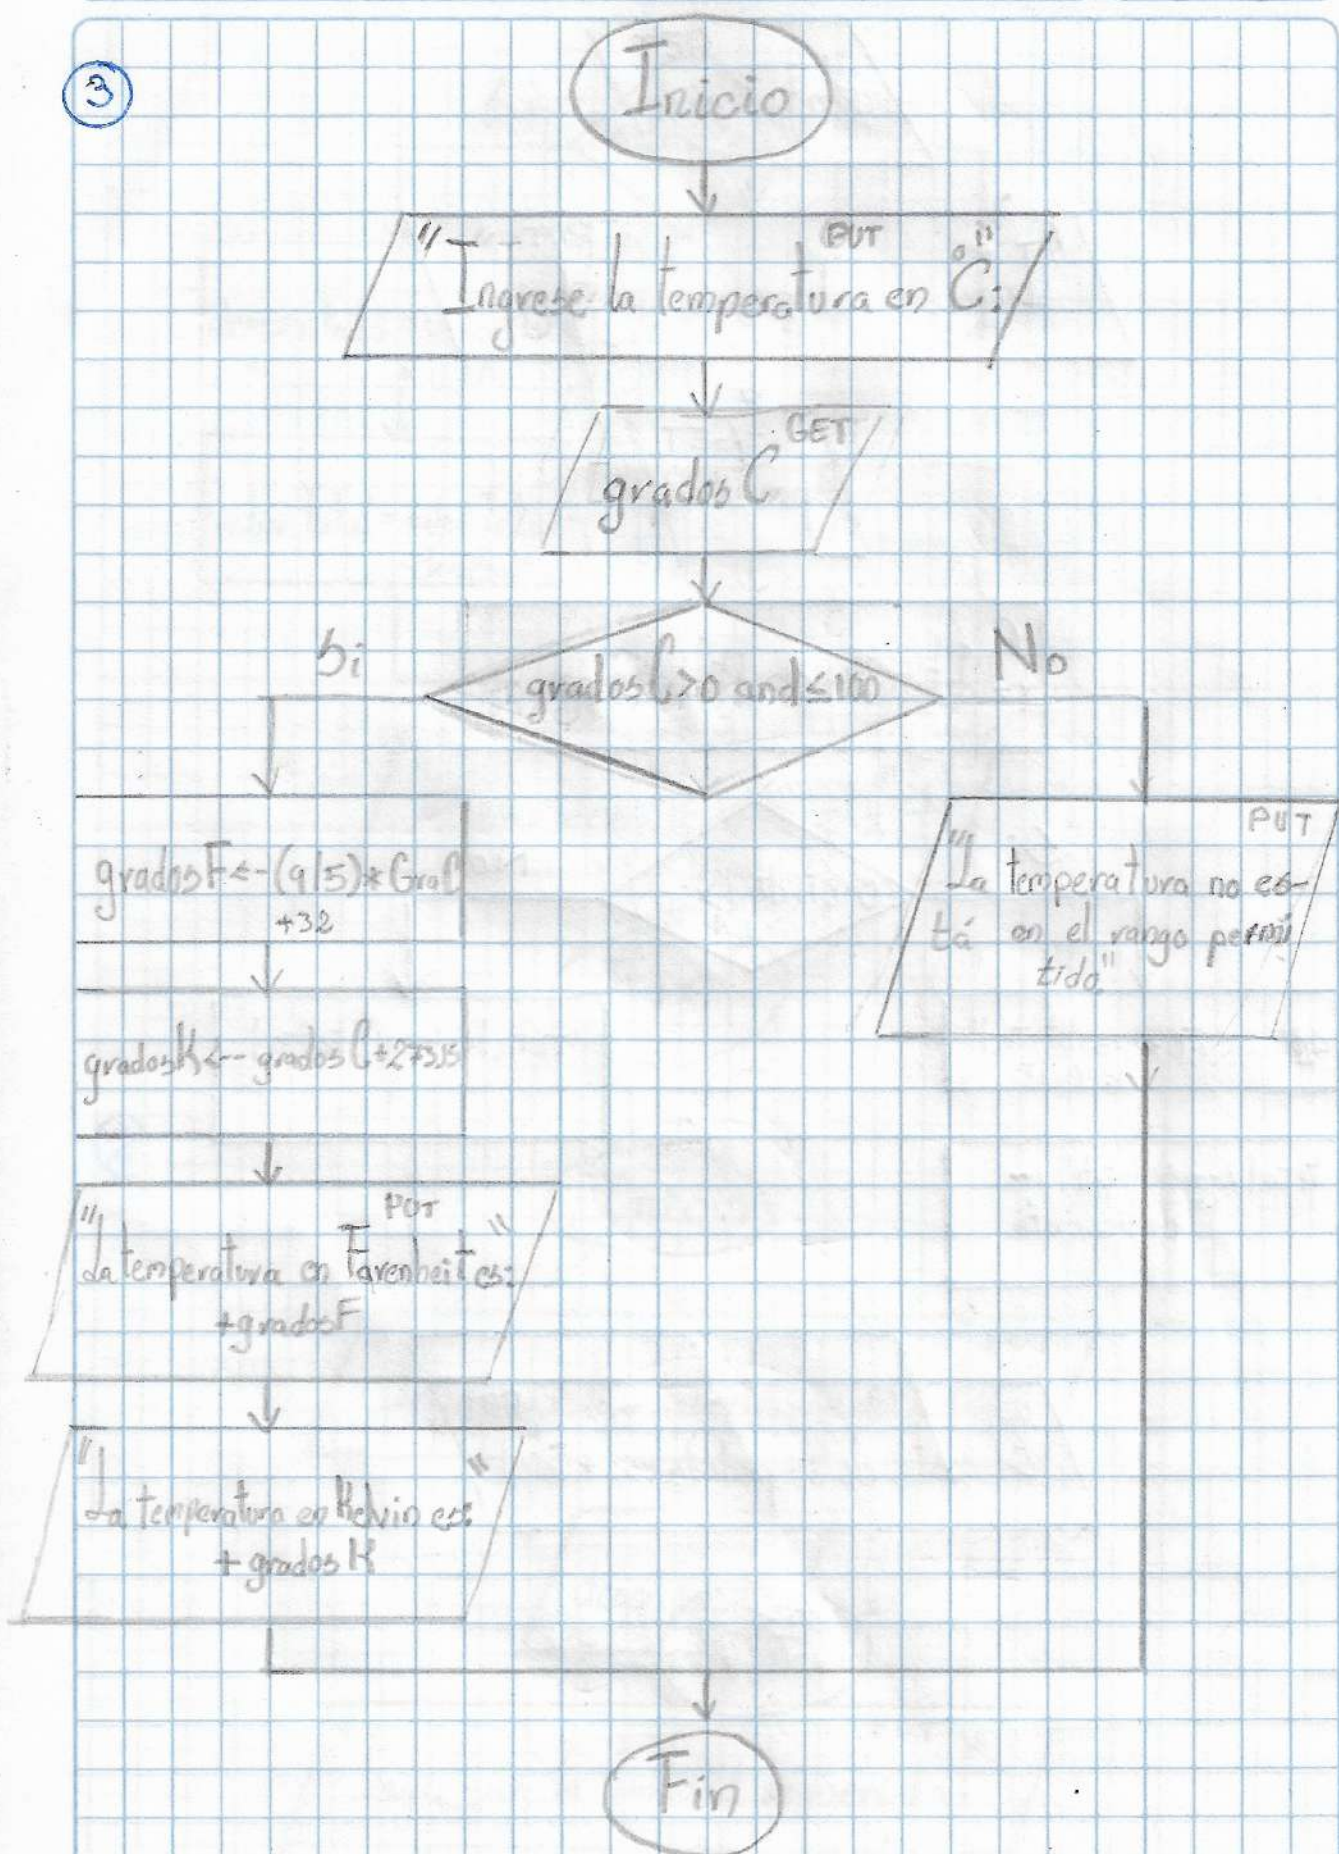 3
Inicio
PUT
"Ingrese la temperatura en °C:"
GET
gradosC
Si
gradosC>0 and ≤100
No
gradosF ← (9/5)* GraC
+32
PUT
"La temperatura no es-
tá en el rango permi
tido"
gradosK ← gradosC+273,15
PUT
"La temperatura en Farenheit es:"
+gradosF
"La temperatura en Kelvin es:"
+gradosK
Fin